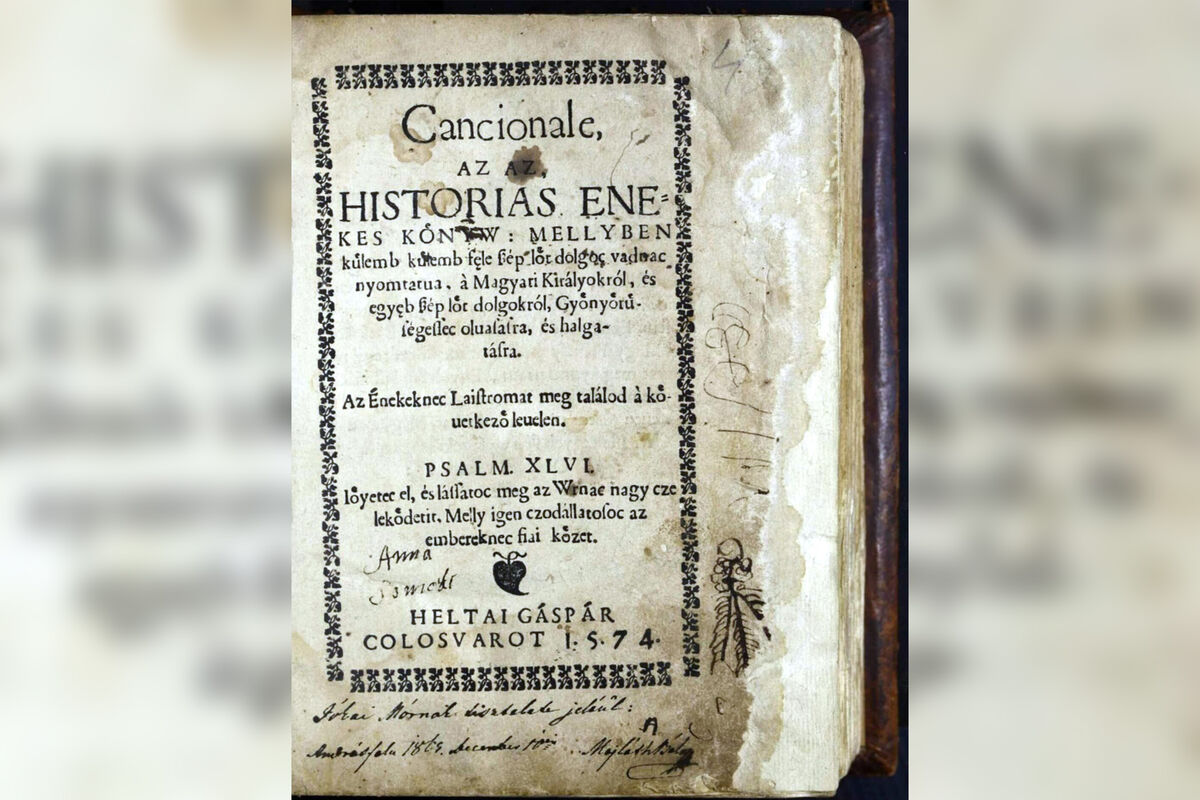 Cancionale,
AZ AZ,
HISTORIAS ENE=
KES KOͤNYW: MELLYBEN
kuͤlemb kuͤlemb fęle ſzép loͤt dolgoc vadnac
nyomtatua, à Magyari Királyokról, és
egyęb ſzép loͤt dolgokról, Gyoͤnyoͤruͤ-
ſégeſſec oluaſaſra, és halga-
táſra.
Az Énekeknec Laiſtromat meg találod à koͤ-
uetkezoͤ leuelen.
PSALM. XLVI.
Ioͤyetec el, és láſſatoc meg az Wrnac nagy cze
lekoͤdetit. Melly igen czodállatoſoc az
embereknec fiai koͤzet.
Anna
HELTAI GÁSPÁR
COLOSVAROT 1.5.7 4.
Jókai Mórnak tisztelete jeléül:
Andrásfalu 1863. december 10én Majláth Béla